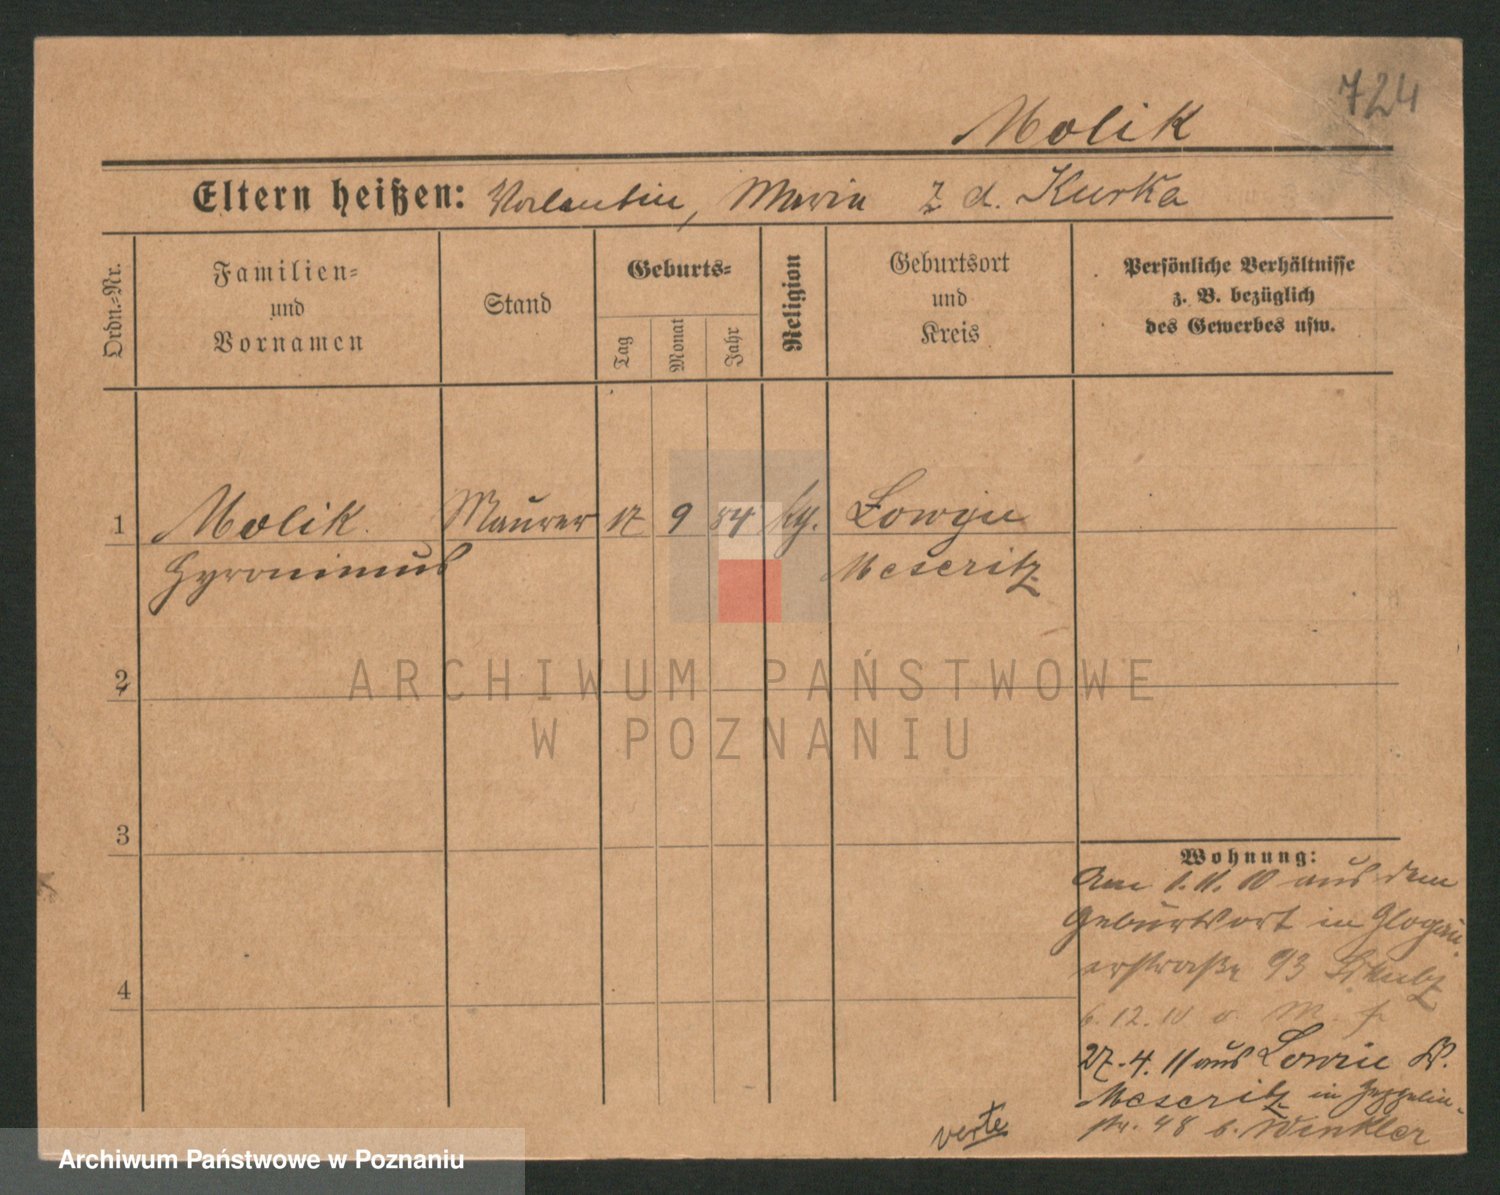 724
Molik
Eltern heißen: Valentin, Maria z d. Kurka
Ordn.-Nr.
Familien-
und
Vornamen
Stand
Geburts-
Tag
Monat
Jahr
Religion
Geburtsort
und
Kreis
Persönliche Verhältnisse
z. B. bezüglich
des Gewerbes usw.
1 Molik Maurer 17 9 84 Lowyn
Hyronimus Meseritz
2
3
4
ARCHIWUM PAŃSTWOWE
W POZNANIU
Wohnung:
Am 1.11.10 aus dem
Geburtsort in Glogau
erstraße 93
6.12.10 v. M.
27.4.11 aus Lowin Kr.
Meseritz in Zeppelin-
str. 48 b. Winkler
verte
Archiwum Państwowe w Poznaniu